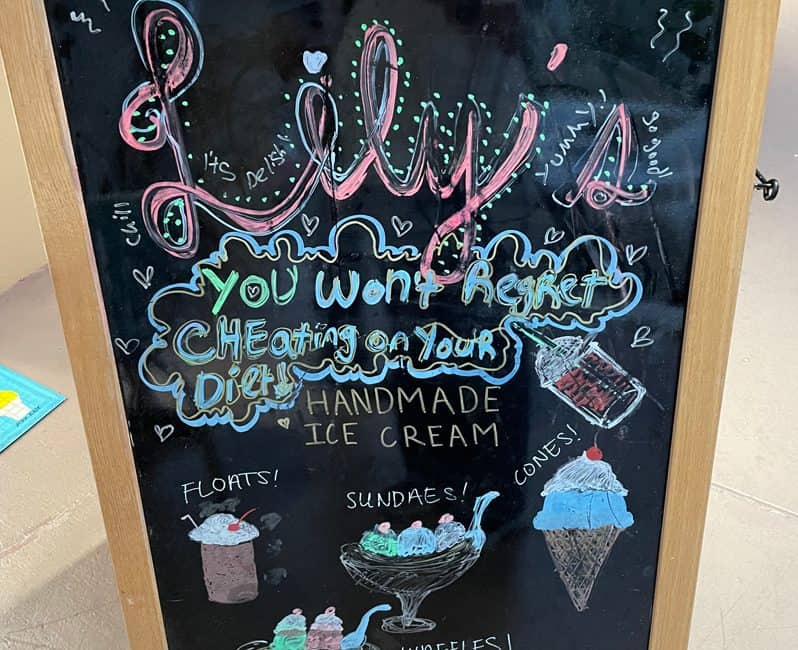 Lily's
Its Delish!
Yummy!
Chill
You Won't Regret
CHEating on Your
Diet!
HANDMADE
ICE CREAM
CONES!
FLOATS!
SUNDAES!
WAFFLES!